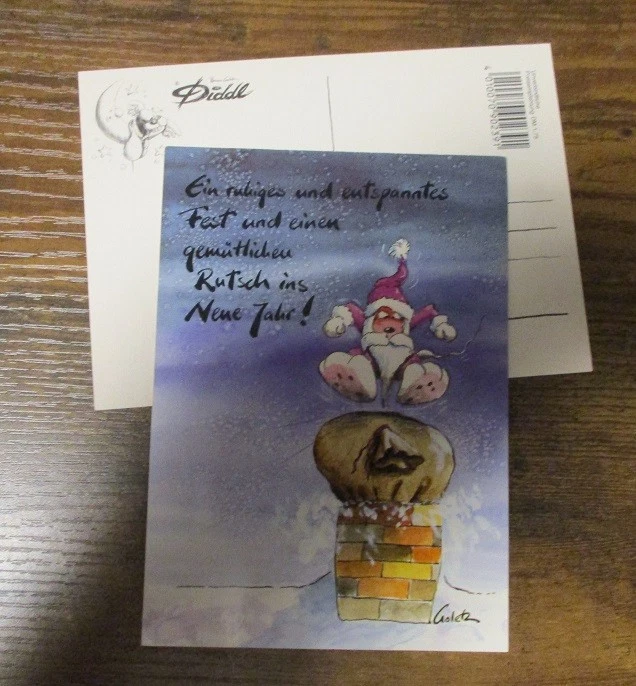 Diddl
Ein ruhiges und entspanntes
Fest und einen
gemütlichen
Rutsch ins
Neue Jahr!
Goletz